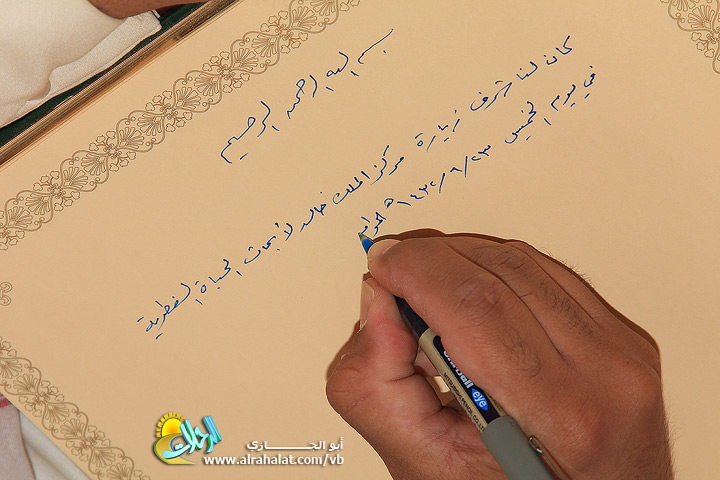 بسم الله الرحمن الرحيم
كان لنا شرف زيارة مركز الملك خالد لأبحاث الحياة الفطرية
في يوم الخميس ١٤٣٢/٨/٢٣هـ
uni-ball eye
MITSUBISHI PENCIL CO.,LTD
الرحلات
أبو الجــــازي
www.alrahalat.com/vb